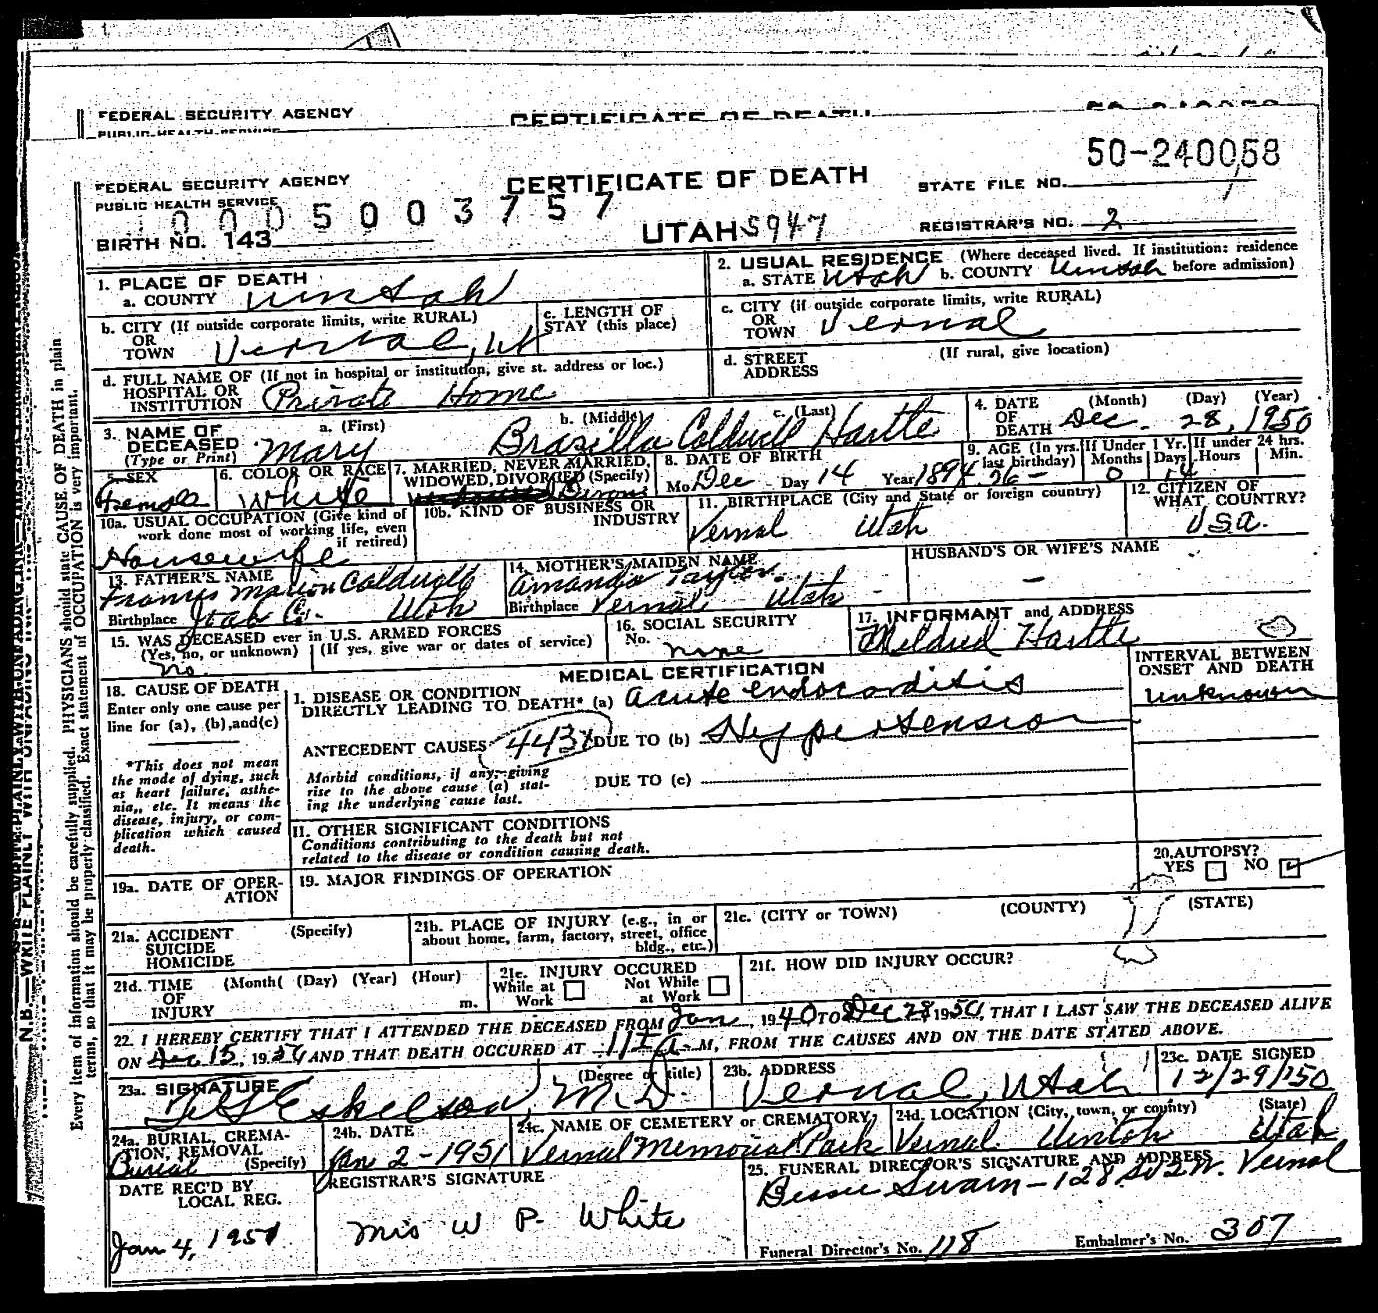 FEDERAL SECURITY AGENCY
CERTIFICATE OF DEATH
PUBLIC HEALTH SERVICE
50-240058
FEDERAL SECURITY AGENCY
CERTIFICATE OF DEATH
STATE FILE NO.
PUBLIC HEALTH SERVICE
0005003757
BIRTH NO. 143
UTAH 5947
REGISTRAR'S NO. 2
1. PLACE OF DEATH
a. COUNTY Uintah
2. USUAL RESIDENCE (Where deceased lived. If institution: residence before admission)
a. STATE Utah b. COUNTY Uintah
b. CITY (If outside corporate limits, write RURAL)
OR
TOWN Vernal, Ut
c. LENGTH OF
STAY (this place)
c. CITY (if outside corporate limits, write RURAL)
OR
TOWN Vernal
d. FULL NAME OF (If not in hospital or institution, give st. address or loc.)
HOSPITAL OR
INSTITUTION Private Home
d. STREET
ADDRESS
(If rural, give location)
3. NAME OF
DECEASED
(Type or Print)
a. (First) b. (Middle) c. (Last)
Mary Brazilla Coldwell Hartle
4. DATE
OF
DEATH
(Month) (Day) (Year)
Dec. 28, 1950
5. SEX
Female
6. COLOR OR RACE
White
7. MARRIED, NEVER MARRIED,
WIDOWED, DIVORCED (Specify)
8. DATE OF BIRTH
Mo. Dec - Day 14 Year 1894
9. AGE (In yrs.
last birthday)
If Under 1 Yr.
Months Days
0 14
If under 24 hrs.
Hours Min.
10a. USUAL OCCUPATION (Give kind of
work done most of working life, even
if retired)
Housewife
10b. KIND OF BUSINESS OR
INDUSTRY
11. BIRTHPLACE (City and State or foreign country)
Vernal Utah
12. CITIZEN OF
WHAT COUNTRY?
USA.
13. FATHER'S NAME
Francis Marion Coldwell
Birthplace Utah
14. MOTHER'S MAIDEN NAME
Amanda Taylor
Birthplace Vernal Utah
HUSBAND'S OR WIFE'S NAME
-
15. WAS DECEASED ever in U.S. ARMED FORCES
(Yes, no, or unknown) (If yes, give war or dates of service)
No.
16. SOCIAL SECURITY
No. none
17. INFORMANT and ADDRESS
Mildred Hartle
MEDICAL CERTIFICATION
INTERVAL BETWEEN
ONSET AND DEATH
18. CAUSE OF DEATH
Enter only one cause per
line for (a), (b), and (c)
1. DISEASE OR CONDITION
DIRECTLY LEADING TO DEATH* (a) acute endocarditis
unknown
ANTECEDENT CAUSES 443X DUE TO (b) Hypertension
Morbid conditions, if any, giving
rise to the above cause (a) stat-
ing the underlying cause last.
DUE TO (c)
*This does not mean
the mode of dying, such
as heart failure, asthe-
nia, etc. It means the
disease, injury, or com-
plication which caused
death.
II. OTHER SIGNIFICANT CONDITIONS
Conditions contributing to the death but not
related to the disease or condition causing death.
19a. DATE OF OPER-
ATION
19. MAJOR FINDINGS OF OPERATION
20. AUTOPSY?
YES NO
21a. ACCIDENT
SUICIDE
HOMICIDE
(Specify)
21b. PLACE OF INJURY (e.g., in or
about home, farm, factory, street, office
bldg., etc.)
21c. (CITY or TOWN) (COUNTY) (STATE)
21d. TIME
OF
INJURY
(Month( (Day) (Year) (Hour)
m.
21e. INJURY OCCURED
While at
Work
Not While
at Work
21f. HOW DID INJURY OCCUR?
22. I HEREBY CERTIFY THAT I ATTENDED THE DECEASED FROM Jan, 1940 TO Dec 28 1950, THAT I LAST SAW THE DECEASED ALIVE
ON Dec 15, 1950 AND THAT DEATH OCCURED AT M, FROM THE CAUSES AND ON THE DATE STATED ABOVE.
23a. SIGNATURE (Degree or title)
Eskelson, M.D.
23b. ADDRESS
Vernal, Utah
23c. DATE SIGNED
12/29/50
24a. BURIAL, CREMA-
TION, REMOVAL
(Specify)
Burial
24b. DATE
Jan 2-1951
24c. NAME OF CEMETERY or CREMATORY
Vernal Memorial Park
24d. LOCATION (City, town, or county) (State)
Vernal Uintah Utah
DATE REC'D BY
LOCAL REG.
Jan 4, 1951
REGISTRAR'S SIGNATURE
Mrs W P. White
25. FUNERAL DIRECTOR'S SIGNATURE AND ADDRESS
Bessie Swain - 128 So 2 W. Vernal
Funeral Director's No. 118
Embalmer's No. 307
N.B.—WRITE PLAINLY WITH UNFADING INK
Every item of information should be carefully supplied. PHYSICIANS should state CAUSE OF DEATH in plain
terms, so that it may be properly classified. Exact statement of OCCUPATION is very important.